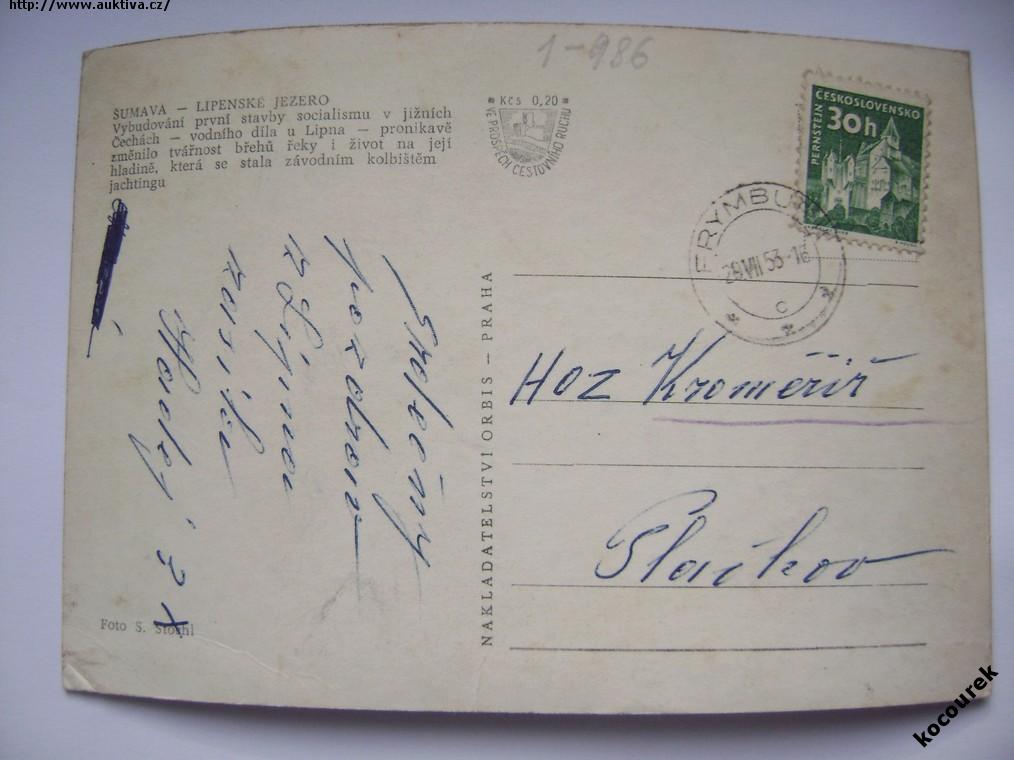 http://www.auktiva.cz/
1-986
ŠUMAVA — LIPENSKÉ JEZERO
Vybudování první stavby socialismu v jižních
Čechách — vodního díla u Lipna — pronikavě
změnilo tvářnost břehů řeky i život na její
hladině, která se stala závodním kolbištěm
jachtingu
Kčs 0,20
VE PROSPĚCH CESTOVNÍHO RUCHU
ČESKOSLOVENSKO
PERNŠTEJN
30h
FRYMBURK
C
Srdečný
pozdrav
z Lipna
NAKLADATELSTVÍ ORBIS — PRAHA
HOZ Kroměříž
Plačkov
Foto S. Stochl
kocourek